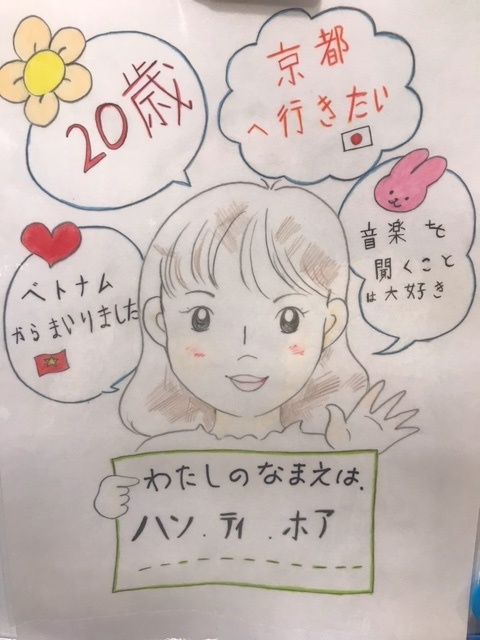 20歳
京都
へ行きたい
音楽を
聞くこと
は大好き
ベトナム
からまいりました
わたしのなまえは、
ハン.ティ.ホア